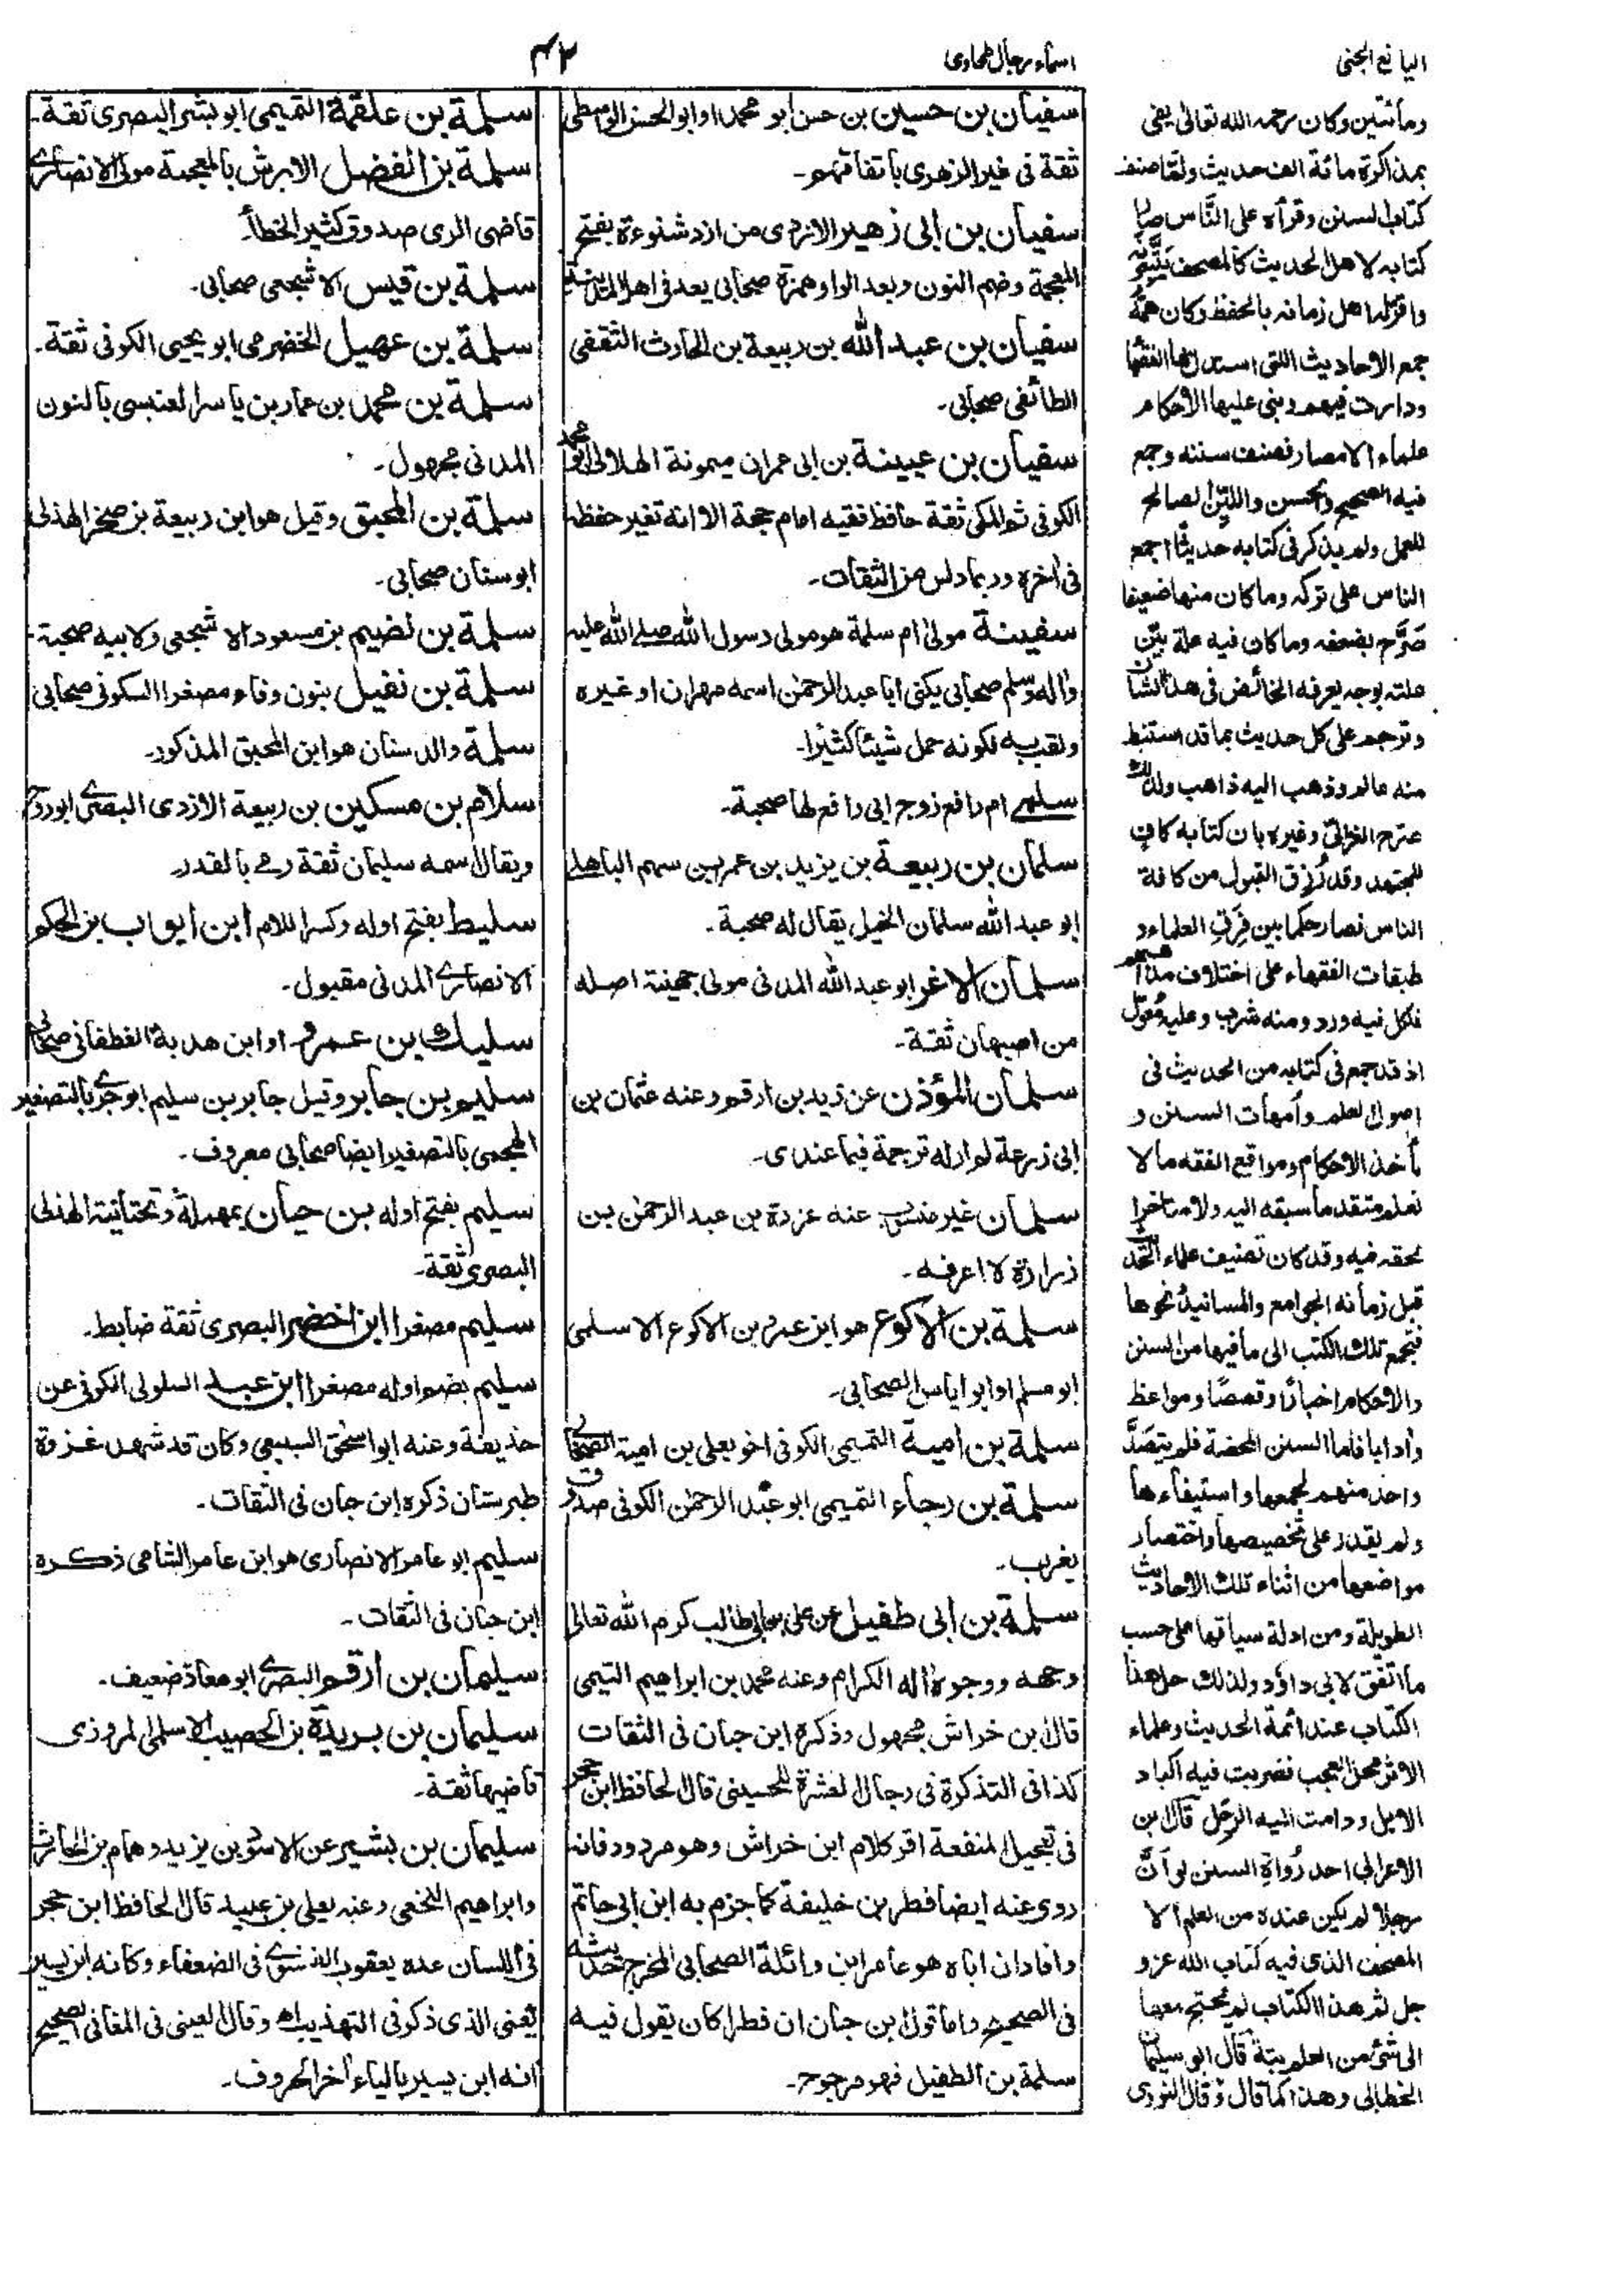 اليانع الجنى
اسماء رجال طحاوى
۴۲
ومأتين وكان رحمه الله تعالى يفى
بمذاكرة مائة الف حديث ولما صنف
كتاب السنن وقرأه على الناس صار
كتابه لاهل الحديث كالمصحف يتبعونه
واقر له اهل زمانه بالحفظ وكان همه
جمع الاحاديث التى استدل بها الفقهاء
ودارت فيهم وبنى عليها الاحكام
علماء الامصار فصنف سننه وجمع
فيه الصحيح والحسن واللين الصالح
للعمل ولم يذكر فى كتابه حديثا اجمع
الناس على تركه وما كان منها ضعيفا
صرح بضعفه وما كان فيه علة بين
علته بوجه يعرفه الخائض فى هذا الشان
وترجم على كل حديث بما قد استنبط
منه عالم وذهب اليه ذاهب ولذلك
صرح الغزالى وغيره بان كتابه كاف
للمجتهد وقد رزق القبول من كافة
الناس فصار حكما بين فرق العلماء و
طبقات الفقهاء على اختلاف مذاهبهم
فلكل فيه ورد ومنه شرب وعليه معول
اذ قد جمع فى كتابه من الحديث فى
اصول العلم وأمهات السنن و
مأخذ الاحكام ومواقع الفقه ما لا
نعلم متقدما سبقه اليه ولا متاخرا
لحقه فيه وقد كان تصنيف علماء الحديث
قبل زمانه الجوامع والمسانيد ونحوها
فتجمع تلك الكتب الى ما فيها من السنن
والاحكام اخبارا وقصصا ومواعظ
وأدابا فاما السنن المحضة فلم يتصد
واحد منهم لجمعها واستيفاءها
ولم يقدر على تخصيصها واختصار
مواضعها من اثناء تلك الاحاديث
الطويلة ومن ادلة سياقها على حسب
ما اتفق لابى داؤد ولذلك حل هذا
الكتاب عند ائمة الحديث وعلماء
الاثر محل العجب فضربت فيه اكباد
الابل ودامت اليه الرحل قال ابن
الاعرابى احد رواة السنن لو أن
رجلا لم يكن عنده من العلم الا
المصحف الذى فيه كتاب الله عز و
جل ثم هذا الكتاب لم يحتج معها
الى شئ من العلم بتة قال ابو سليمان
الخطابى وهذا كما قال وقال النووى
سفيان بن حسين بن حسن ابو محمد او ابو الحسن الواسطى
ثقة فى غير الزهرى باتفاقهم۔
سفيان بن ابى زهير الازدى من ازد شنوءة بفتح
المعجمة وضم النون وبعد الواو همزة صحابى يعد فى اهل المدينة
سفيان بن عبد الله بن ربيعة بن الحارث الثقفى
الطائفى صحابى۔
سفيان بن عيينة بن ابى عمران ميمونة الهلالى ابو محمد
الكوفى ثم المكى ثقة حافظ فقيه امام حجة الا انه تغير حفظه
فى اخره وربما دلس من الثقات۔
سفينة مولى ام سلمة هو مولى رسول الله صلى الله عليه
واله وسلم صحابى يكنى ابا عبد الرحمن اسمه مهران او غيره
ولقب به لكونه حمل شيئا كثيرا۔
سلمى ام رافع زوج ابى رافع لها صحبة۔
سلمان بن ربيعة بن يزيد بن عمرو بن سهم الباهلى
ابو عبد الله سلمان الخيل يقال له صحبة۔
سلمان الاغر ابو عبد الله المدنى مولى جهينة اصله
من اصبهان ثقة۔
سلمان المؤذن عن زيد بن ارقم وعنه عثمان بن
ابى زرعة لم ار له ترجمة فيما عندى۔
سلمان غير منسوب عنه عزرة بن عبد الرحمن بن
زرارة لا اعرفه۔
سلمة بن الاكوع هو ابن عمرو بن الاكوع الاسلمى
ابو مسلم او ابو اياس الصحابى۔
سلمة بن امية التميمى الكوفى اخو يعلى بن امية الصحابى
سلمة بن رجاء التميمى ابو عبد الرحمن الكوفى صدوق
يغرب۔
سلمة بن ابى طفيل عن على بن ابى طالب كرم الله تعالى
وجهه ووجوه اله الكرام وعنه محمد بن ابراهيم التيمى
قال ابن خراش مجهول وذكره ابن حبان فى الثقات
كذا فى التذكرة فى رجال العشرة للحسينى قال الحافظ ابن حجر
فى تعجيل المنفعة اقر كلام ابن خراش وهو مردود فانه
روى عنه ايضا فطر بن خليفة كما جزم به ابن ابى حاتم
وافاد ان اباه هو عامر ابن واثلة الصحابى المخرج حديثه
فى الصحيح واما قول ابن حبان ان فطرا كان يقول فيه
سلمة بن الطفيل فهو مرجوح۔
سلمة بن علقمة التميمى ابو بشر البصرى ثقة۔
سلمة بن الفضل الابرش بالمعجمة مولى الانصارى
قاضى الرى صدوق كثير الخطأ۔
سلمة بن قيس الاشجعى صحابى۔
سلمة بن عهيل الحضرمى ابو يحيى الكوفى ثقة۔
سلمة بن محمد بن عمار بن ياسر العنسى بالنون
المدنى مجهول۔
سلمة بن المحبق وقيل هو ابن ربيعة بن صخر الهذلى
ابو سنان صحابى۔
سلمة بن نضيم بن مسعود الاشجعى ولابيه صحبة۔
سلمة بن نفيل بنون وفاء مصغرا السكونى صحابى
سلمة والد سنان هو ابن المحبق المذكور۔
سلام بن مسكين بن ربيعة الازدى البصرى ابو روح
ويقال اسمه سليمان ثقة رمى بالقدر۔
سليط بفتح اوله وكسر اللام ابن ايواب بن الحكم
الانصارى المدنى مقبول۔
سليك بن عمرو او ابن هدبة الغطفانى صحابى
سليم بن جابر وقيل جابر بن سليم ابو جرى بالتصغير
الهجيمى بالتصغير ايضا صحابى معروف۔
سليم بفتح اوله بن حيان بمهملة وتحتانية الهذلى
البصرى ثقة۔
سليم مصغرا ابن اخضر البصرى ثقة ضابط۔
سليم بضم اوله مصغرا ابن عبد السلولى الكوفى عن
حذيفة وعنه ابو اسحق السبيعى وكان قد شهد غزوة
طبرستان ذكره ابن حبان فى الثقات۔
سليم ابو عامر الانصارى هو ابن عامر الشامى ذكره
ابن حبان فى الثقات۔
سليمان بن ارقم البصرى ابو معاذ ضعيف۔
سليمان بن بريدة بن الحصيب الاسلمى المروزى
قاضيها ثقة۔
سليمان بن بشير عن الاسود بن يزيد وهمام بن الحارث
وابراهيم النخعى وعنه يعلى بن عبيد قال الحافظ ابن حجر
فى اللسان عده يعقوب الفسوى فى الضعفاء وكانه ابن يسير
يعنى الذى ذكر فى التهذيب اه وقال العينى فى المغانى الصحيح
انه ابن يسير بالياء اخر الحروف۔